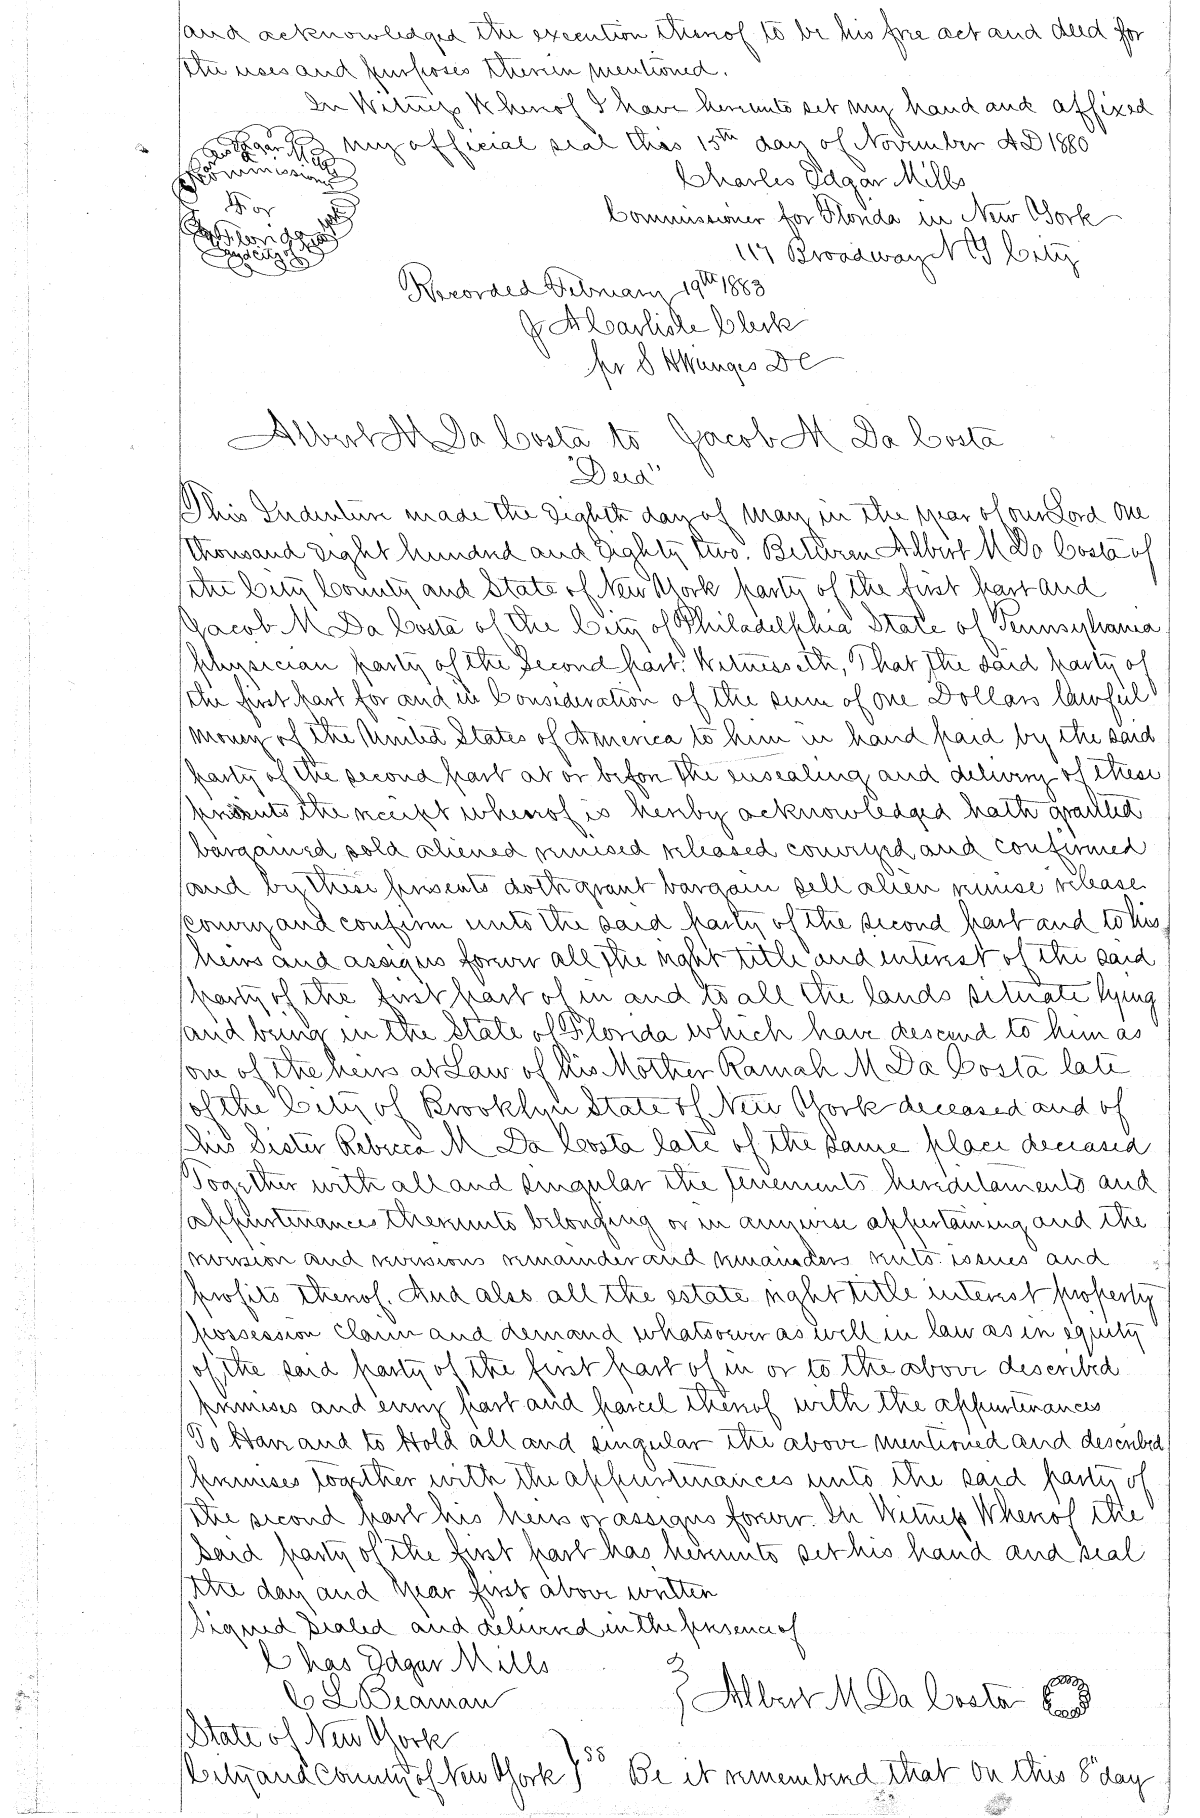 and acknowledged the execution thereof to be his free act and deed for
the uses and purposes therein mentioned.
In Witness Whereof I have hereunto set my hand and affixed
my official seal this 15th day of November AD 1880
Charles Edgar Mills
Commissioner
For
Florida
Charles Edgar Mills
Commissioner for Florida in New York
117 Broadway N Y City
Recorded February 19th 1883
J A Carlisle Clerk
pr S H Wienges DC
Albert M Da Costa to Jacob M Da Costa
"Deed"
This Indenture made the Eighth day of May in the year of our Lord One
thousand Eight hundred and Eighty two. Between Albert M Da Costa of
the City County and State of New York party of the first part and
Jacob M Da Costa of the City of Philadelphia State of Pennsylvania
physician party of the Second part: Witnesseth, That the said party of
the first part for and in Consideration of the sum of one Dollars lawful
money of the United States of America to him in hand paid by the said
party of the second part at or before the ensealing and delivery of these
presents the receipt whereof is hereby acknowledged hath granted
bargained sold aliened remised released conveyed and confirmed
and by these presents doth grant bargain sell alien remise release
convey and confirm unto the said party of the second part and to his
heirs and assigns forever all the right title and interest of the said
party of the first part of in and to all the lands situate lying
and being in the State of Florida which have descend to him as
one of the heirs at Law of his Mother Ramah M Da Costa late
of the City of Brooklyn State of New York deceased and of
his Sister Rebecca M Da Costa late of the same place deceased
Together with all and singular the tenements hereditaments and
appurtenances thereunto belonging or in anywise appertaining and the
reversion and reversions remainder and remainders rents issues and
profits thereof. And also all the estate right title interest property
possession claim and demand whatsoever as well in law as in equity
of the said party of the first part of in or to the above described
premises and every part and parcel thereof with the appurtenances
To Have and to Hold all and singular the above mentioned and described
premises together with the appurtenances unto the said party of
the second part his heirs or assigns forever. In Witness Whereof the
said party of the first part has hereunto set his hand and seal
the day and year first above written
Signed Sealed and delivered in the presence of
Chas Edgar Mills
C L Beaman
Albert M Da Costa
State of New York
City and County of New York } ss Be it remembered that on this 8" day